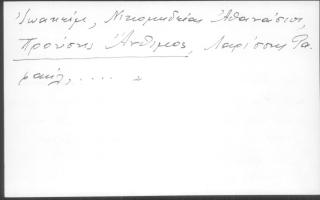 Ἰωακείμ, Νικομηδείας Ἀθανάσιος,
Προύσης Ἄνθιμος, Λαρίσσης Ρα-
φαήλ, ....